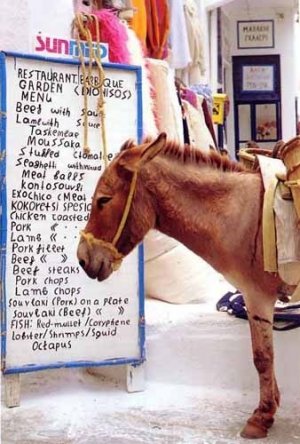 SUNMED
RESTAURANT. BARBEQUE
GARDEN (EXOHISOS)
MENU
Beef with Sauce
Lamb with Sauce
Taskembae
Moussaka
Stuffed tomatoe
Spaghetti with mind
Meat balls
kontosouvli
Exochico (Meat
KOKORETSI SPESIA
Chicken roasted
Pork « ·
Lamb « ·
Pork fillet
Beef « »
Beef steaks
Pork chops
Lamb chops
Souvlaki (Pork) on a plate
Souvlaki (Beef) « »
FISH: Red-mullet/Coryphene
lobster/Shrimps/Squid
Octapus